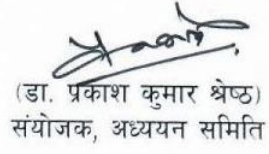 (डा. प्रकाश कुमार श्रेष्ठ)
संयोजक, अध्ययन समिति